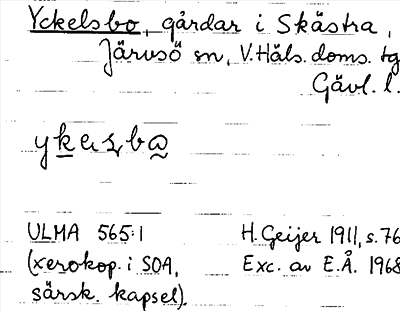 Yckelsbo, gårdar i Skästra,
Järvsö sn, V. Häls. doms. tg
Gävl. l.
ULMA 565:1
(xerokop. i SOA,
särsk. kapsel).
H. Geijer 1911, s. 76
Exc. av E.Å. 1968